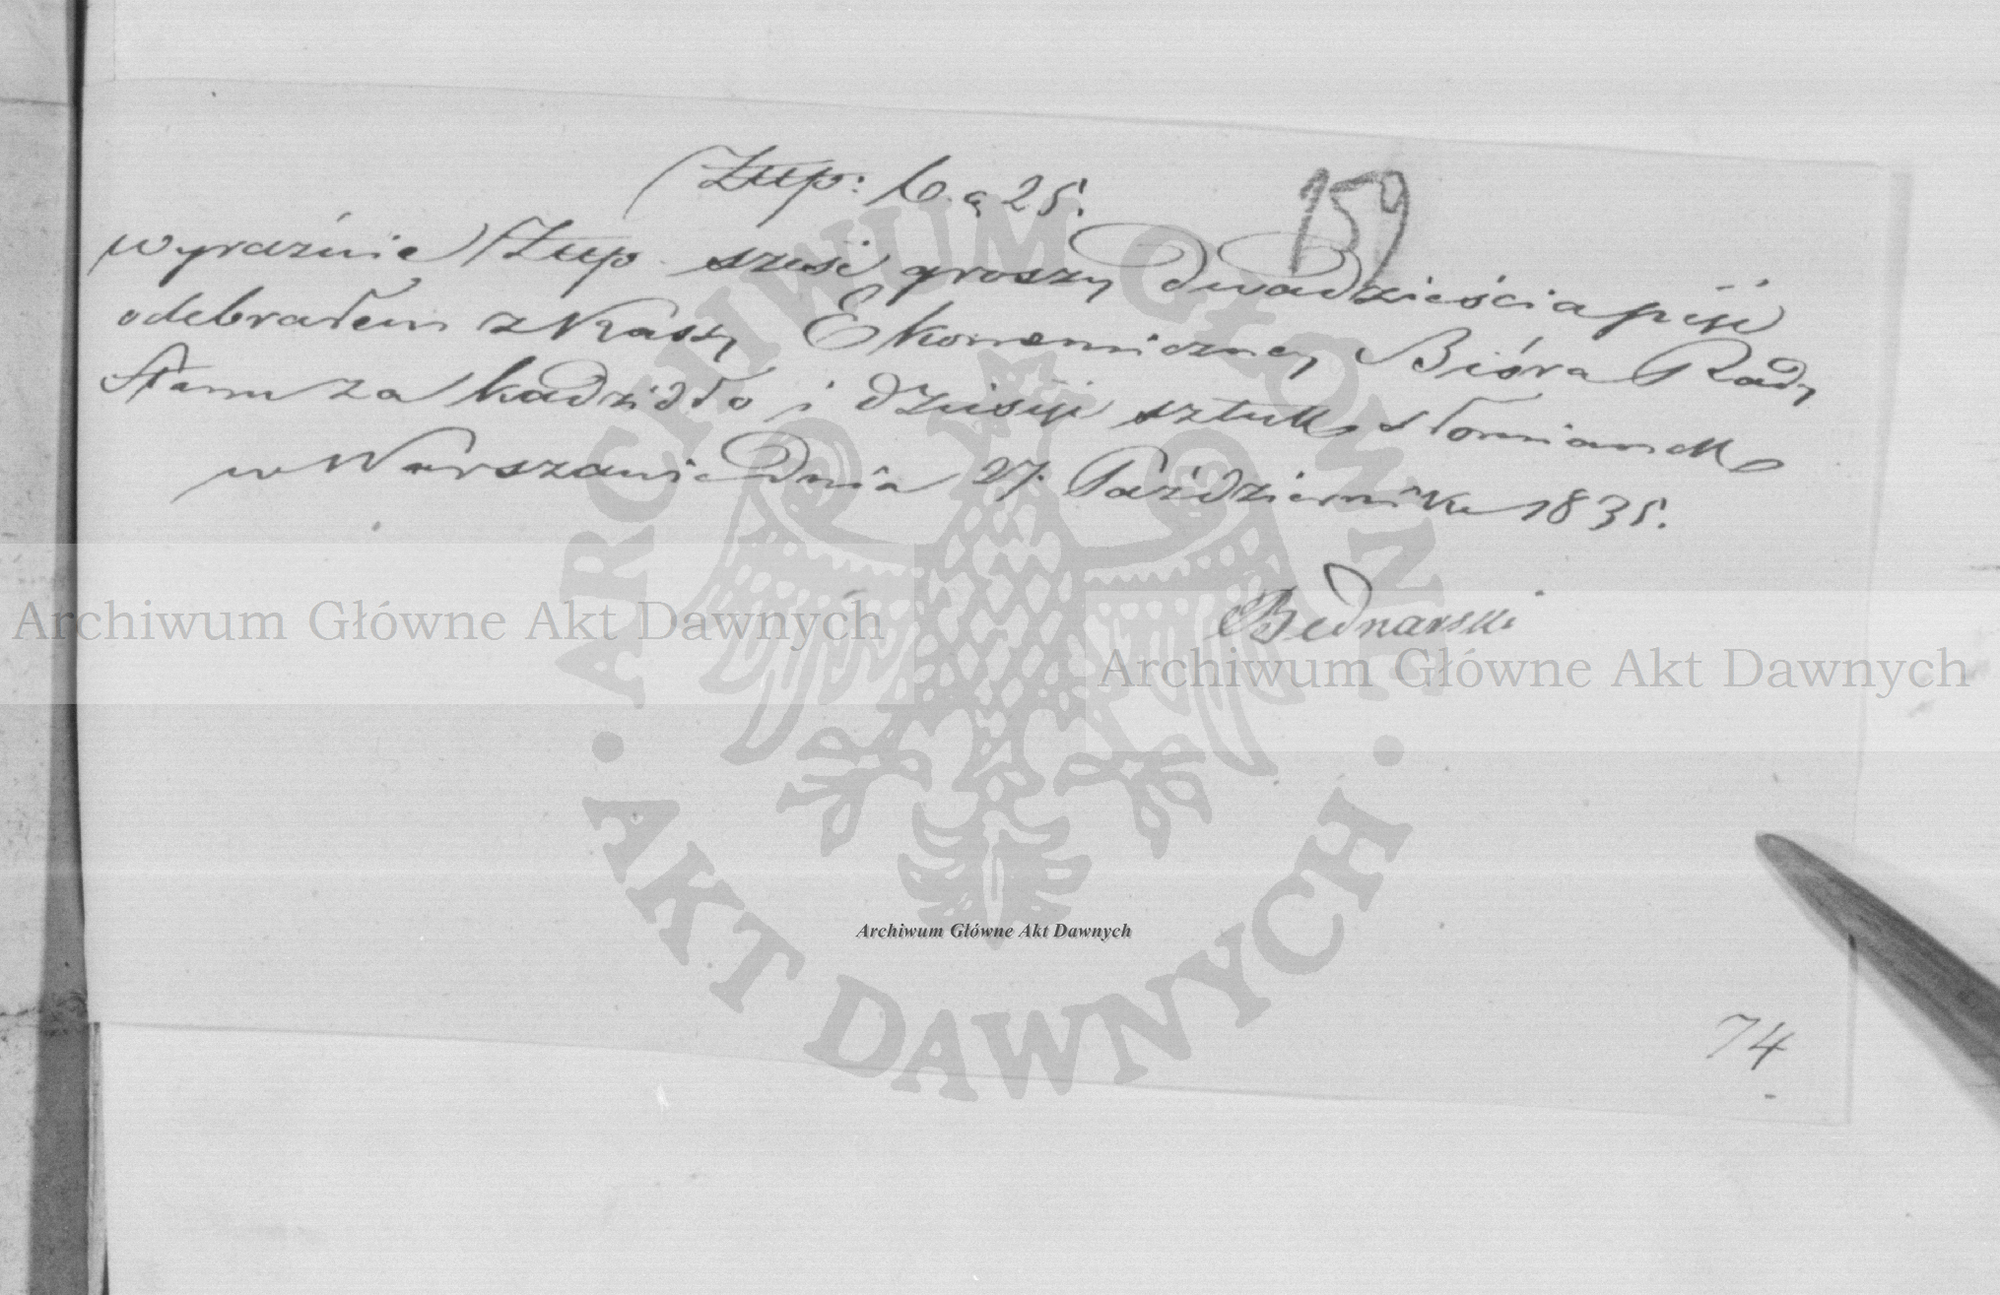 Złłp: 6. g 25.
159
wyraźnie Złłp. sześć groszy dwadzieścia pięć
odebrałem z Kassy Ekonomiczney Bióra Rady
Stanu za kadzidło i dziesięć sztuk słomianek
w Warszawie Dnia 27. Października 1835.
Bednarski
Archiwum Główne Akt Dawnych
Archiwum Główne Akt Dawnych
ARCHIWUM GŁÓWNE · AKT DAWNYCH ·
Archiwum Główne Akt Dawnych
74